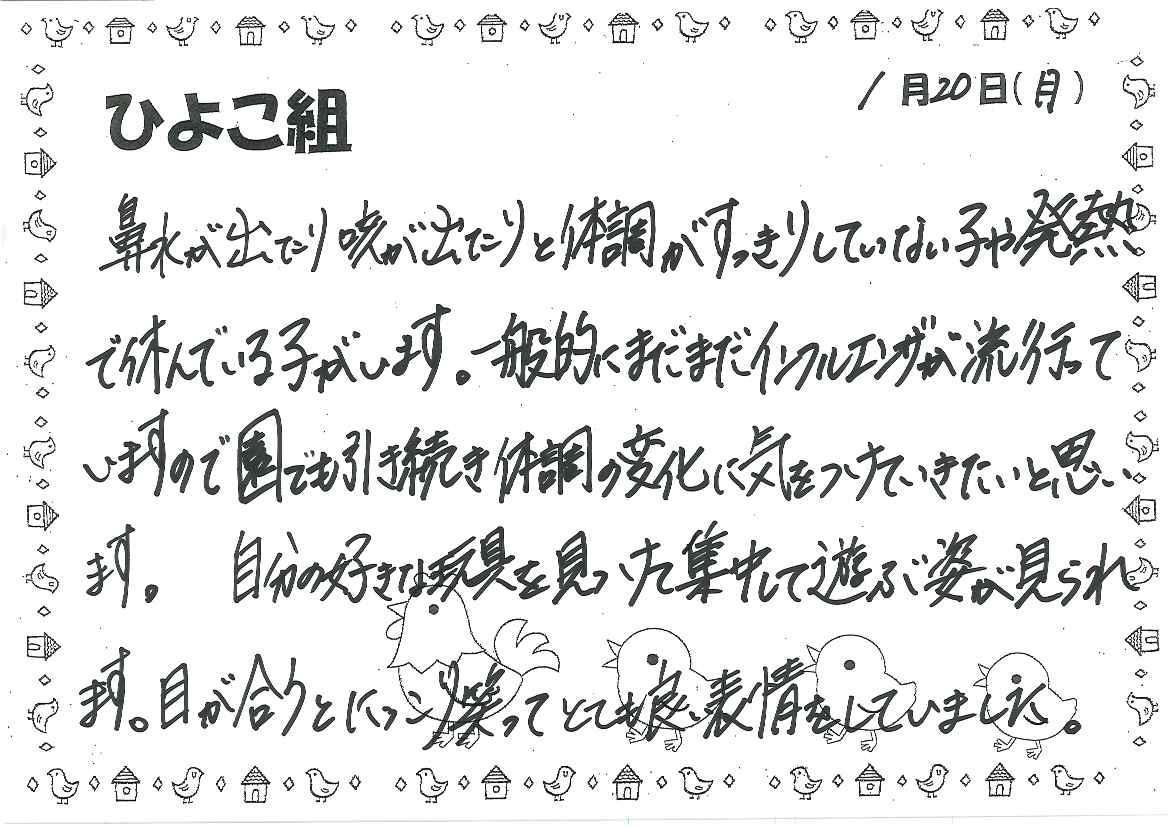 1月20日(月)
ひよこ組
鼻水が出たり咳が出たりと体調がすっきりしていない子や発熱
で休んでいる子がいます。一般的にまだまだインフルエンザが流行って
いますので園でも引き続き体調の変化に気をつけていきたいと思い
ます。 自分の好きな玩具を見つけて集中して遊ぶ姿が見られ
ます。目が合うとにっこり笑ってとても良い表情をしていました。